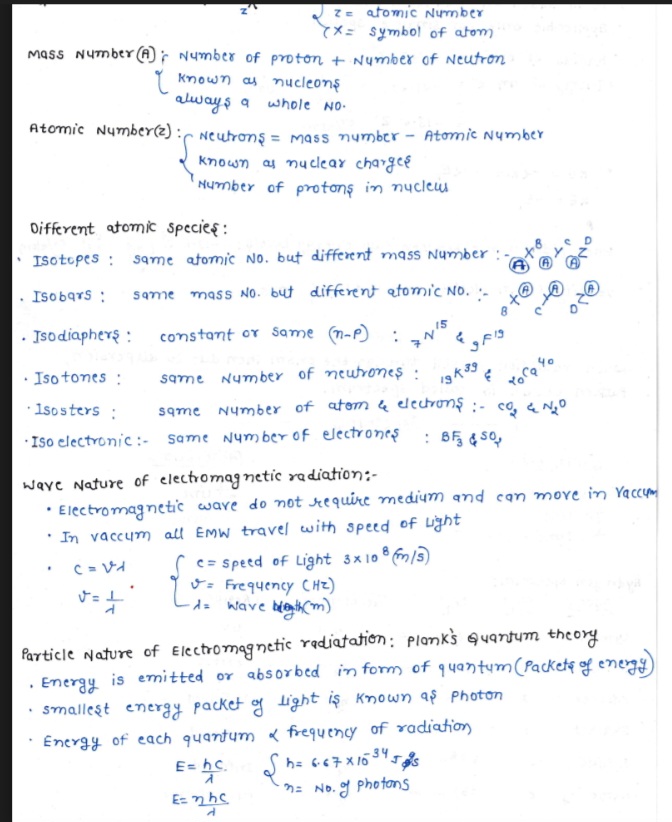 z
z = atomic Number
X = symbol of atom
Mass Number (A) : Number of proton + Number of Neutron
Known as nucleons
always a whole No.
Atomic Number(z) : Neutrons = Mass number - Atomic Number
Known as nuclear charges
Number of protons in nucleus
Different atomic species :
• Isotopes : same atomic No. but different mass Number :- AX^B AY^C AZ^D
• Isobars : same mass No. but different atomic No. :- BX^A CY^A DZ^A
• Isodiaphers : constant or same (n-p) : 7N^15 & 9F^19
• Isotones : same Number of neutrones : 19K^39 & 20Ca^40
• Isosters : same Number of atom & electrons :- CO2 & N2O
• Iso electronic :- same Number of electrones : BF3 & SO2
Wave Nature of electromagnetic radiation:-
• Electromagnetic wave do not require medium and can move in Vaccum
• In vaccum all EMW travel with speed of Light
• c = νλ { c = speed of Light 3×10^8 (m/s)
ν = 1/λ ν = Frequency (Hz)
λ = Wave (m)
Particle Nature of Electromagnetic radiatation : Plank's Quantum theory
• Energy is emitted or absorbed in form of quantum (Packets of energy)
• smallest energy packet of light is Known as Photon
• Energy of each quantum α frequency of radiation
E = hc/λ { h = 6.67×10^-34 J s
n = No. of photons
E = nhc/λ